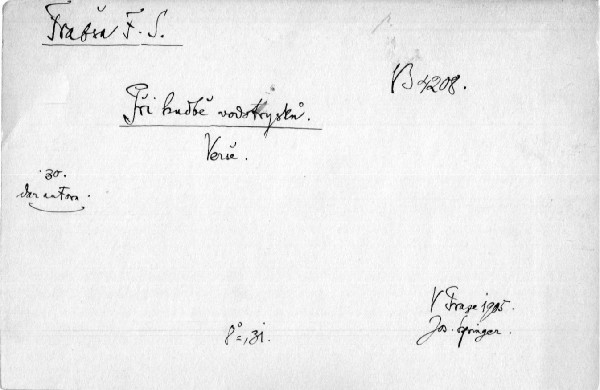 Fraňa F. S.
B 4208.
Při hudbě vodotrysků.
Verše.
30.
dar autora.
V Praze 1905.
Jos. Springer.
8°, 31.